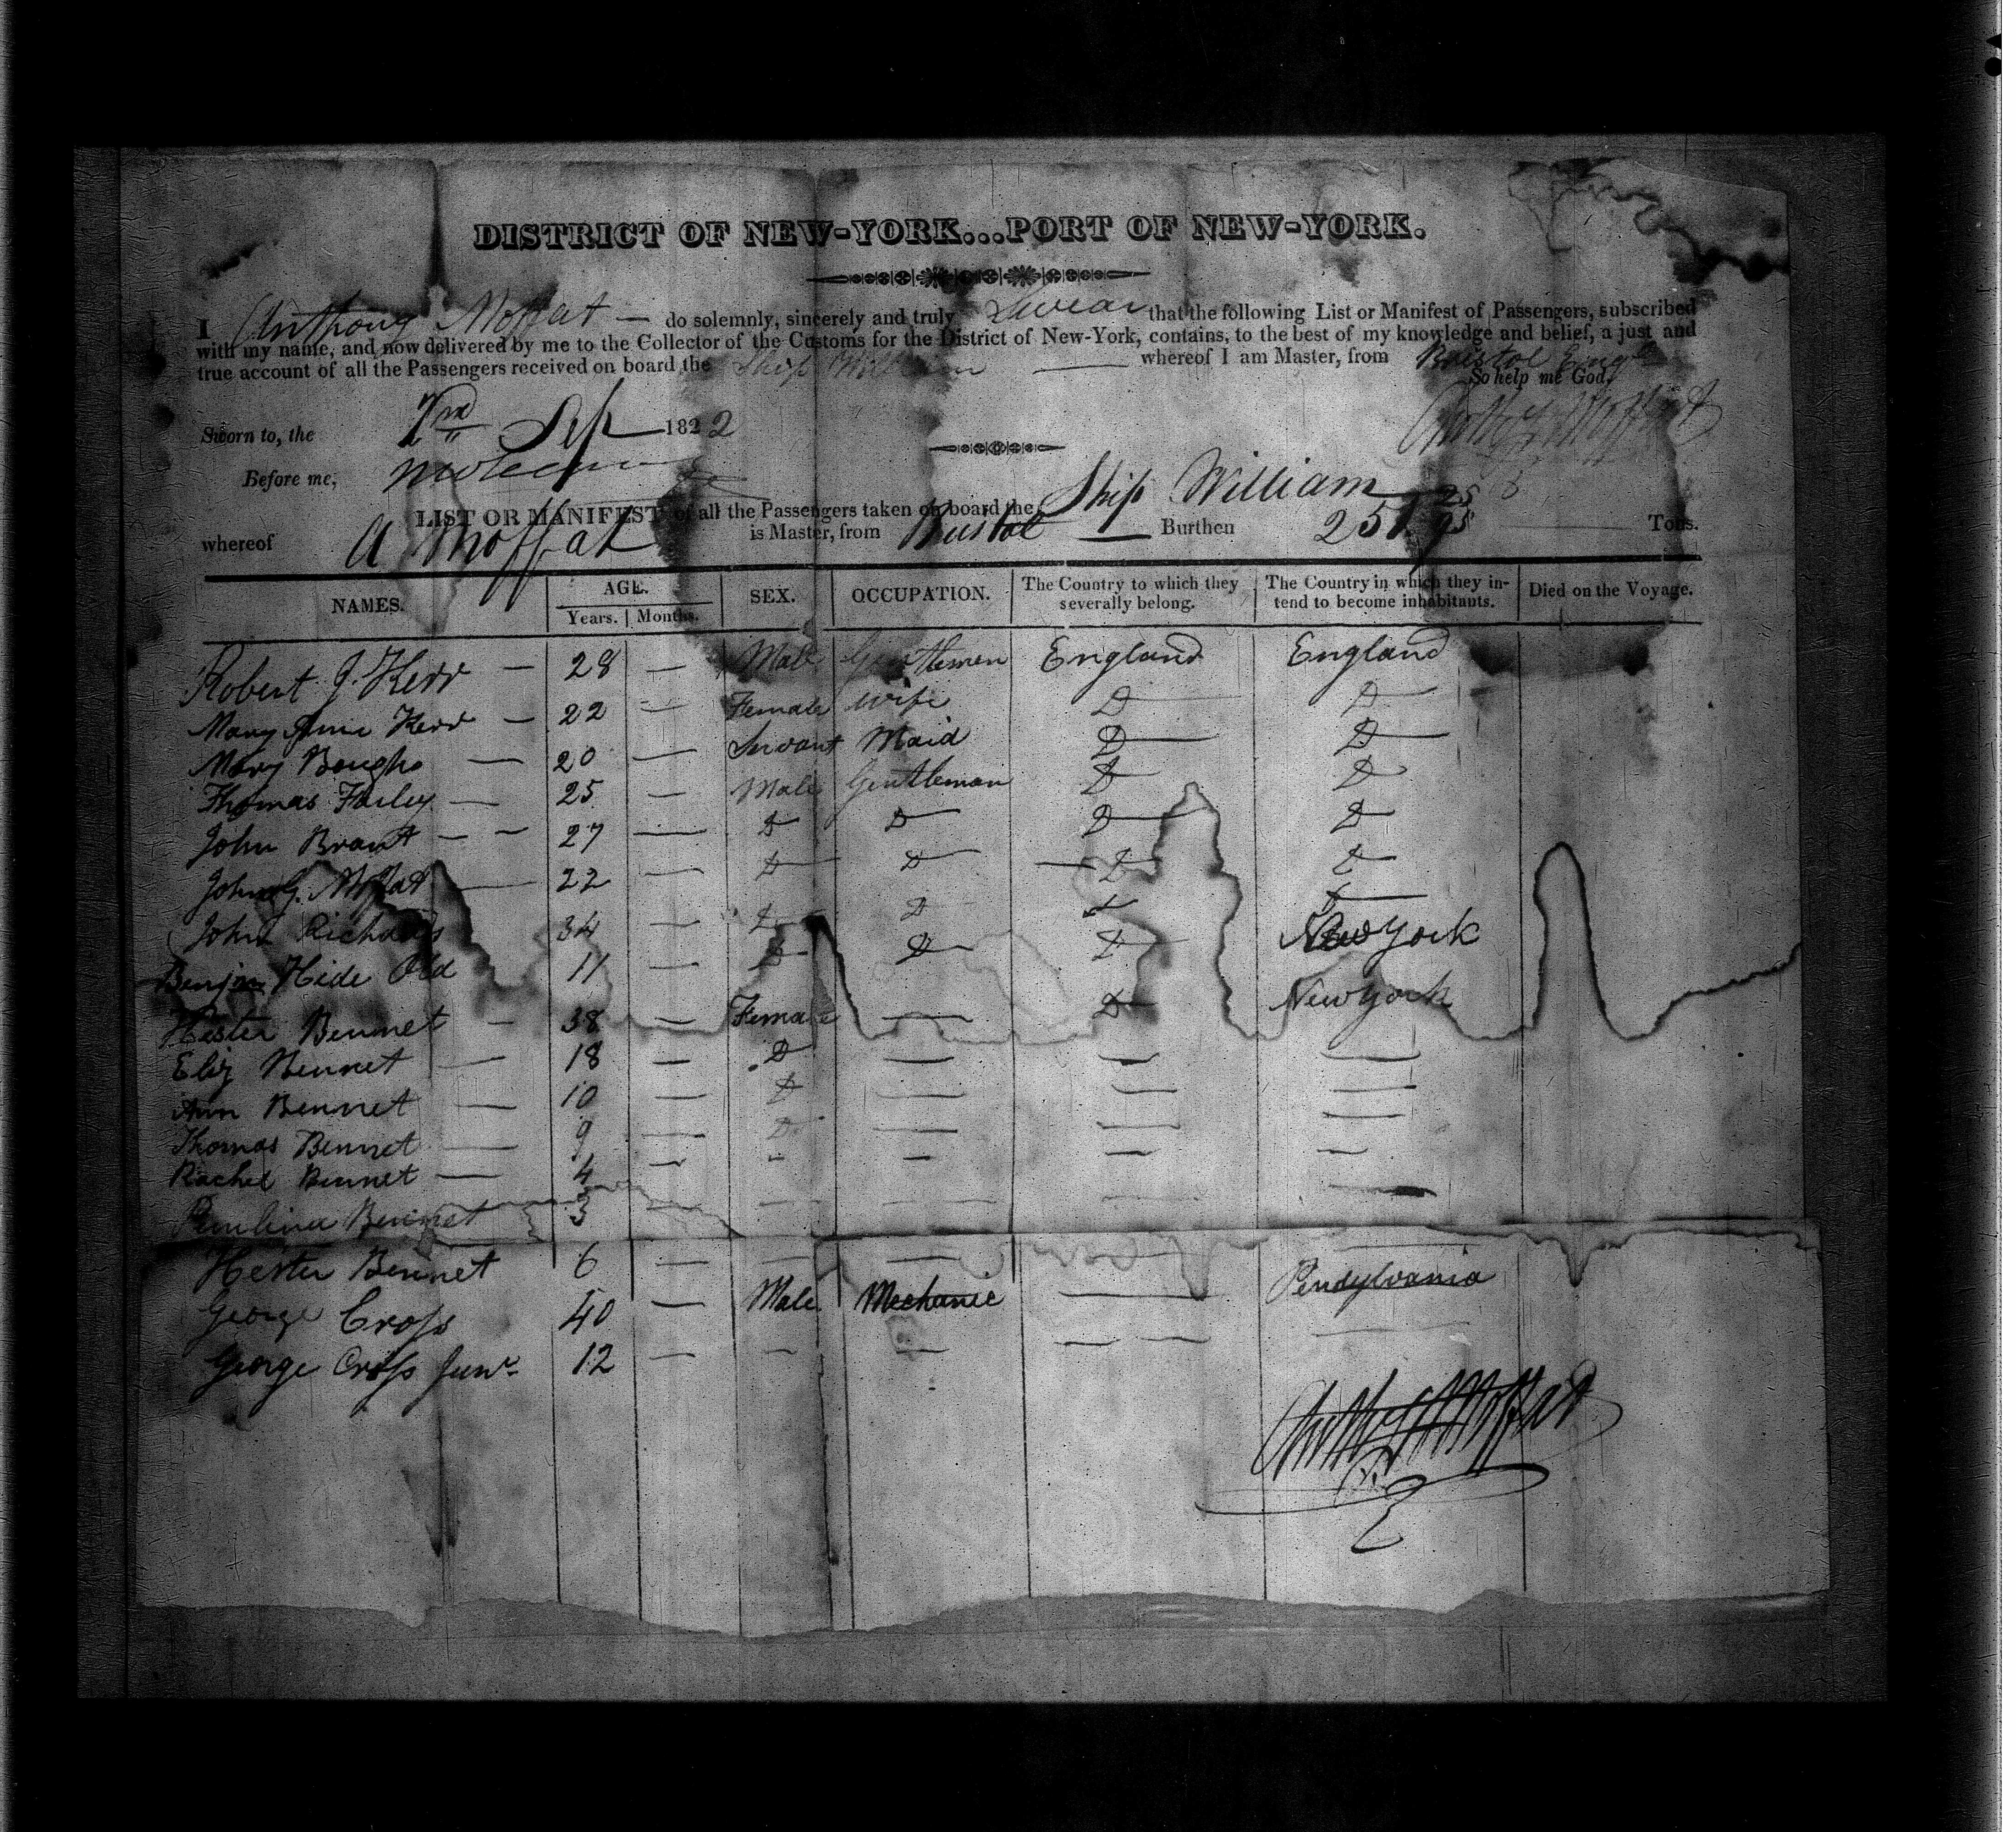 DISTRICT OF NEW-YORK...PORT OF NEW-YORK.
I Anthony Moffat — do solemnly, sincerely and truly Swear that the following List or Manifest of Passengers, subscribed
with my name, and now delivered by me to the Collector of the Customs for the District of New-York, contains, to the best of my knowledge and belief, a just and
true account of all the Passengers received on board the Ship William — whereof I am Master, from Bristol Engd
So help me God.
Sworn to, the Sep 1822
Anthy Moffat
Before me,
LIST OR MANIFEST of all the Passengers taken on board the Ship William
whereof A Moffat is Master, from Bristol — Burthen 251 25/95 Tons.
NAMES. AGE. SEX. OCCUPATION. The Country to which they severally belong. The Country in which they intend to become inhabitants. Died on the Voyage.
Years. Months.
Robert J. Kerr — 28 — Male Gentlemen England England
Mary Ann Kerr — 22 — Female wife D D
Mary — 20 — Servant Maid D D
Thomas Farley — 25 — Male Gentleman D D
John Brant — — 27 — D D D D
John G. Moffat — 22 — D D D D
John Richards 34 — D D D D
Benjan Hide Old 11 — D D D New York
Hester Bennet — 38 — Female — D New York
Eliz Bennet — 18 — D — — —
Ann Bennet — 10 — D — — —
Thomas Bennet — 9 — D — — —
Rachel Bennet — 4 — - — — —
Paulina Bennet 3 — — — —
Hester Bennet 6 — — — — —
George Cross 40 — Male Mechanic — Pendylvania
George Cross Junr 12 — — — — —
Anthy Moffat